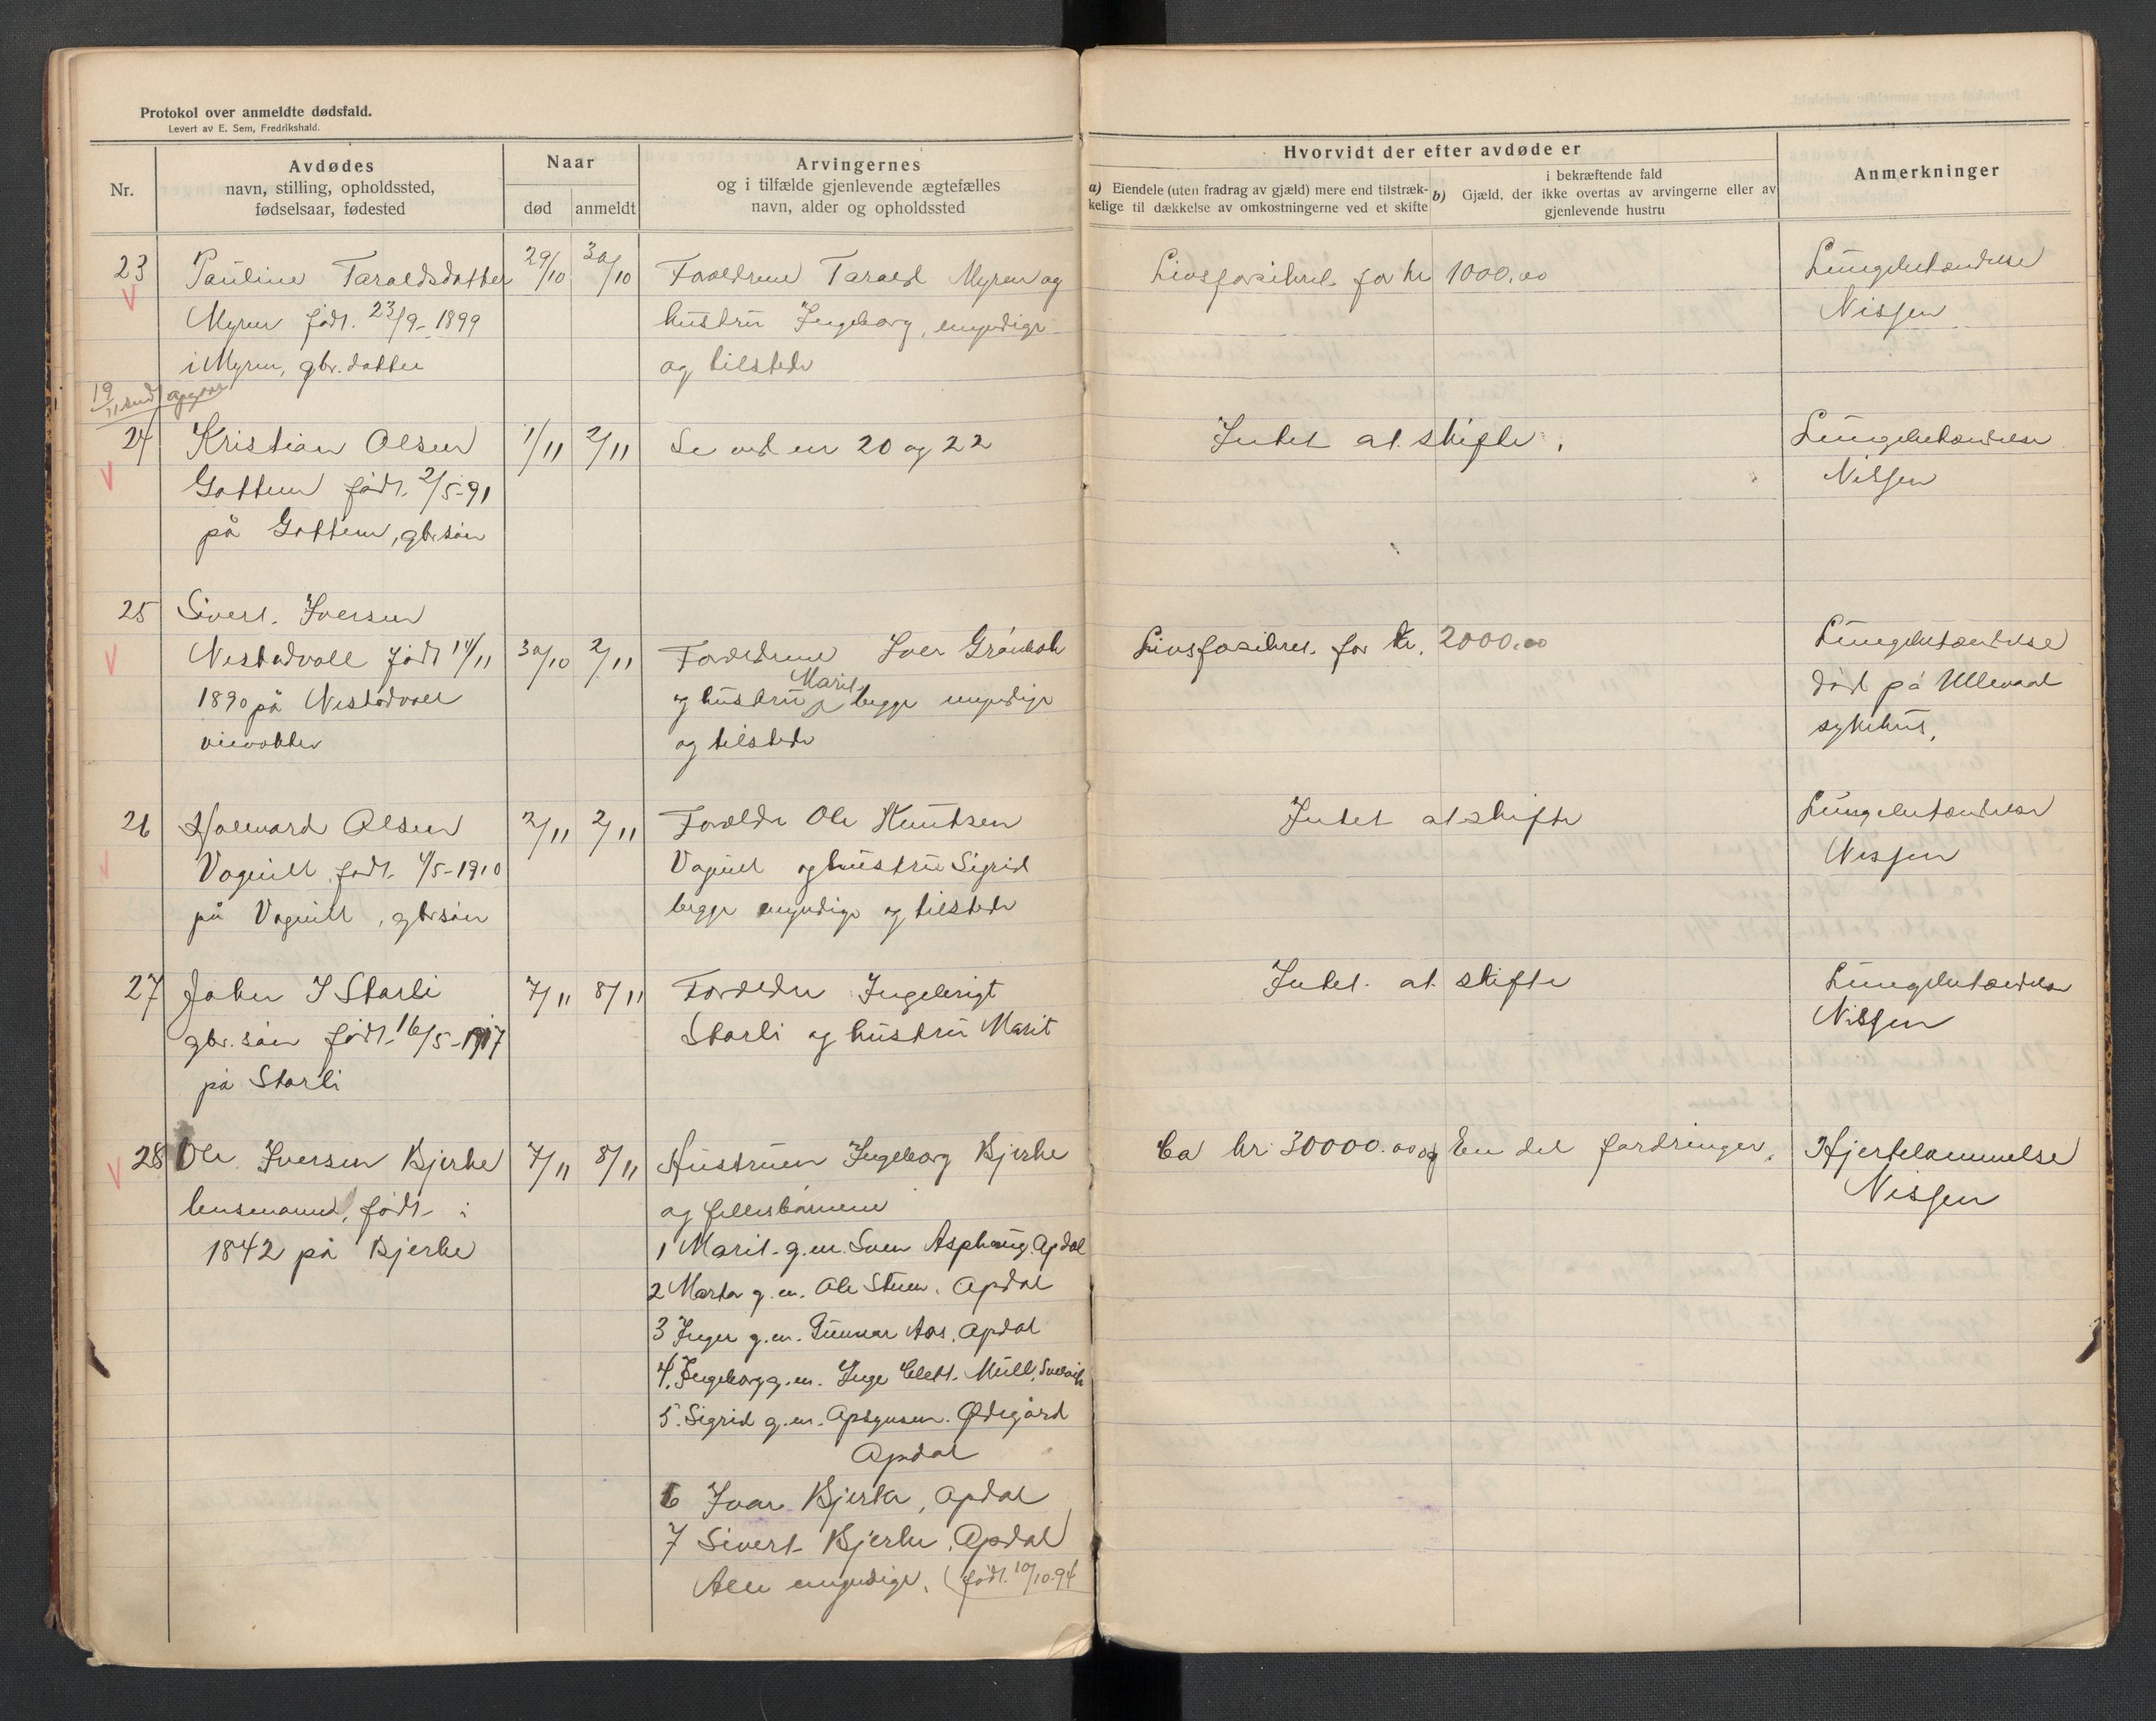 Protokol over anmeldte dødsfald.
Levert av E. Sem, Fredrikshald.
Nr.
Avdødes
navn, stilling, opholdssted,
fødselsaar, fødested
Naar
død
anmeldt
Arvingernes
og i tilfælde gjenlevende ægtefælles
navn, alder og opholdssted
Hvorvidt der efter avdøde er
a) Eiendele (uten fradrag av gjæld) mere end tilstræk-
kelige til dækkelse av omkostningerne ved et skifte
i bekræftende fald
b) Gjæld, der ikke overtas av arvingerne eller av
gjenlevende hustru
Anmerkninger
23
Pauline Taraldsdatter
Myren født 23/9-1899
i Myren, gbr.datter
29/10
30/10
Forældrene Tarald Myren og
hustru Ingeborg, myndige
og tilstede
Livsforsikret for kr 1000.00
Lungebetændelse
Nissen
19/11 send
24
Kristian Olsen
Gottem født 2/5-91
på Gottem, gbr.søn
1/11
2/11
Se ved nr 20 og 22
Intet at skifte.
Lungebetændelse
Nissen
25
Sivert Iversen
Nestadvoll født 14/11
1890 på Nestadvoll
30/10
2/11
Forældrene Iver Grønbak
og hustru Marit begge myndige
og tilstede
Livsforsikret for kr. 2000.00
Lungebetændelse
død på Ullevaal
sykehus.
26
Halvard Olsen
Vognill født 4/5-1910
på Vognill, gbr.søn
2/11
2/11
Forældre Ole Knutsen
Vognill og hustru Sigrid
begge myndige og tilstede
Intet at skifte
Lungebetændelse
Nissen
27
John I Storli
gbr.søn født 16/5-1917
på Storli
7/11
8/11
Forældre Ingebrigt
Storli og hustru Marit
Intet at skifte
Lungebetændelse
Nissen
28
Ole Iversen Bjerke
lensmann, født i
1842 på Bjerke
7/11
8/11
Hustruen Ingeborg Bjerke
og fellesbarnene
1 Marit g.m. Sven Asphaug. Opdal
2 Marta g.m. Ole Stuen, Opdal
3 Inger g.m. Gunnar Aas, Opdal
4. Ingeborg g.m. Inge Klett
5. Sigrid g.m. Ødegård
Opdal
6 Ivar Bjerke, Opdal
7 Sivert Bjerke, Opdal
Alle myndige. (født 10/10.94
Ca kr. 30000.00 og En del fordringer.
Hjertelammelse
Nissen